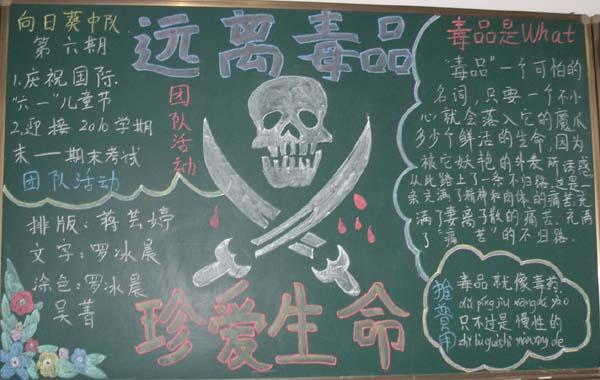 向日葵中队
第六期
1.庆祝国际
“六一”儿童节
2.迎接2010学期
末——期末考试
团队活动
排版:蒋芸婷
文字:罗冰晨
涂色:罗冰晨
吴菁
远离毒品
团队活动
珍爱生命
毒品是What
“毒品”一个可怕的
名词,只要一个不小
心就会落入它的魔爪
多少个鲜活的生命,因为
被它妖艳的外表所诱惑
从此踏上了一条不归路,这是一
条充满了精神和肉体的痛苦,充
满了妻离子散的痛苦,充满
了“痛苦”的不归路.
推普角
毒品就像毒药
dú pǐng jiù xàng dú yào
只不过是慢性的
zhǐ bù guò shì màn xìng de